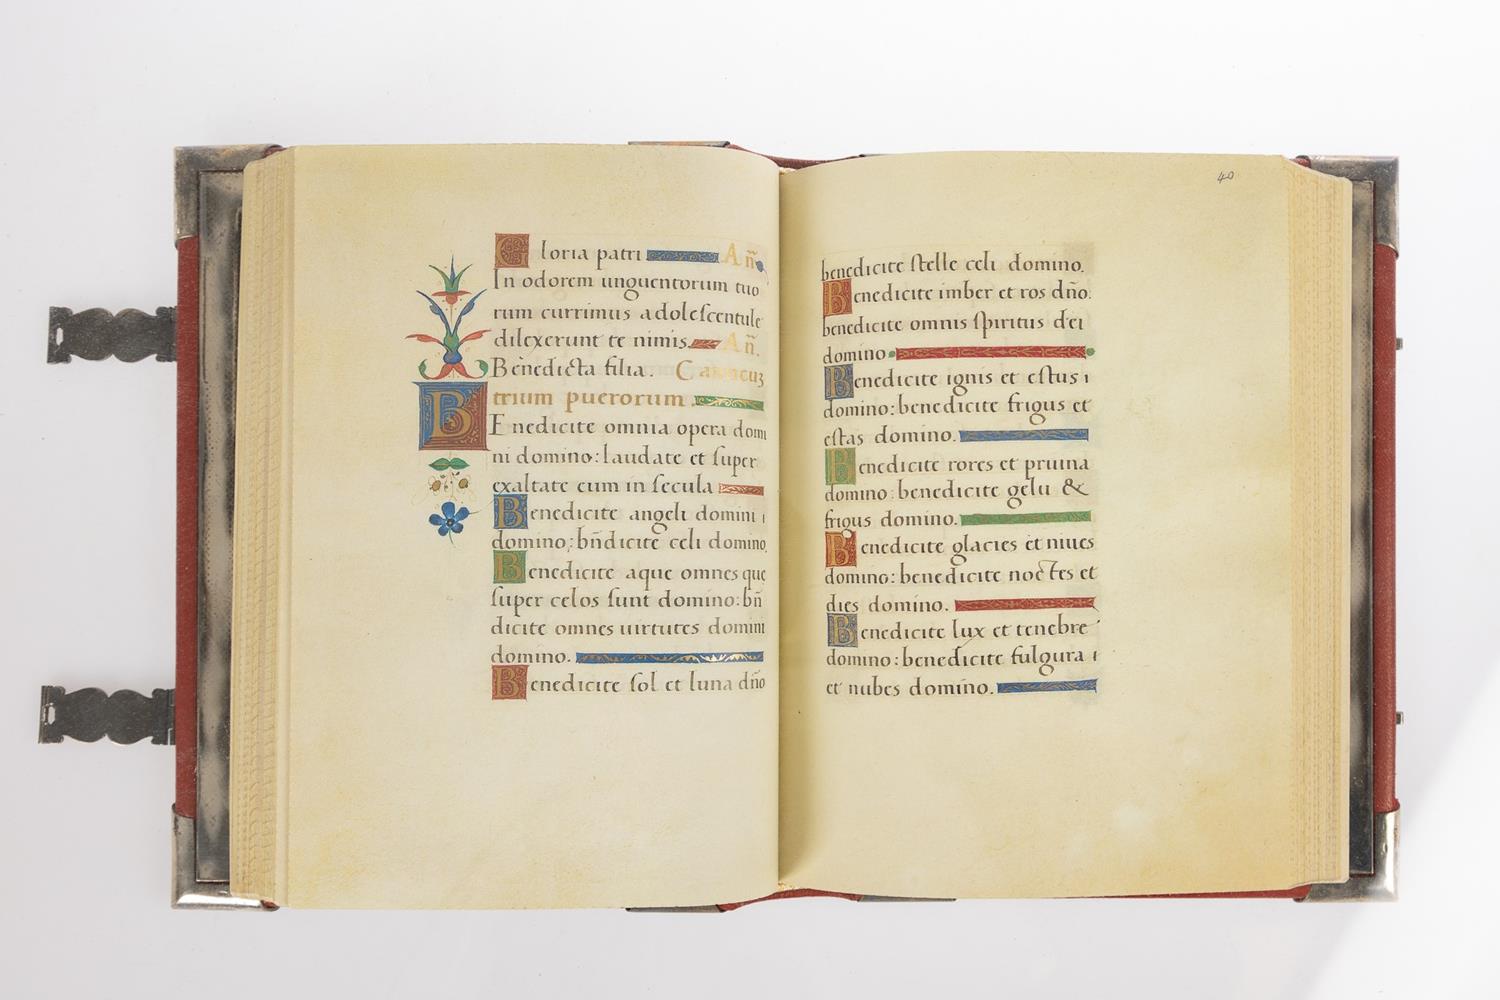 Gloria patri Añ.
In odorem unguentorum tuo
rum currimus adolescentule
dilexerunt te nimis. Añ.
Benedicta filia. Canticuz
trium puerorum.
BEnedicite omnia opera domi
ni domino: laudate et super
exaltate eum in secula
Benedicite angeli domini
domino: bñdicite celi domino.
Benedicite aque omnes que
super celos sunt domino: bñ
dicite omnes uirtutes domini
domino.
Benedicite sol et luna dño
40
benedicite stelle celi domino.
Benedicite imber et ros dño:
benedicite omnis spiritus dei
domino
Benedicite ignis et estus
domino: benedicite frigus et
estas domino.
Benedicite rores et pruina
domino: benedicite gelu &
frigus domino.
Benedicite glacies et niues
domino: benedicite noctes et
dies domino.
Benedicite lux et tenebre
domino: benedicite fulgura
et nubes domino.